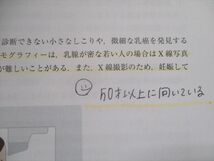 診断できない小さなしこりや、微細な乳癌を発見する
モグラフィーは、乳腺が密な若い人の場合はX線写真
が難しいことがある。また、X線撮影のため、妊娠して
50才以上に向いている